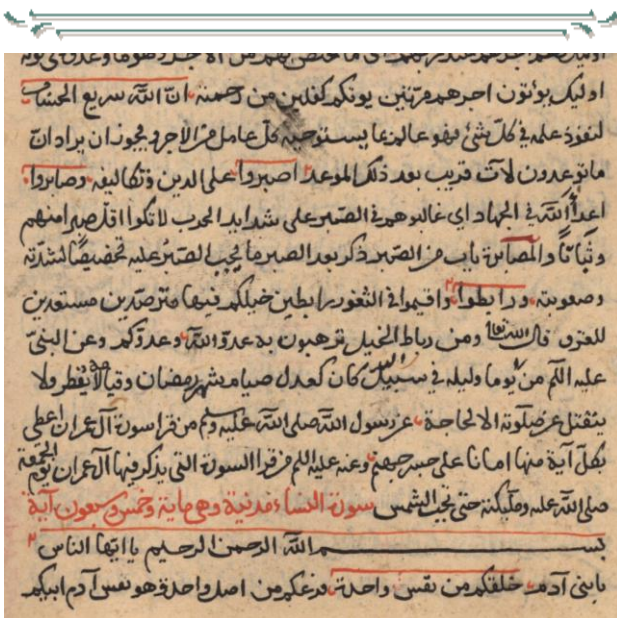 اولئك يؤتون اجرهم مرّتين يؤتكم كفلين من رحمته انّ اللّه سريع الحساب
لنفوذ علمه في كلّ شئ فهو عالم بما يستوجبه كلّ عامل من الاجر ويجوز ان يراد انّ
ما توعدون لآت قريب بعد ذكر الموعد اصبروا على الدين وتكاليفه وصابروا
اعدآ اللّه في الجهاد اى غالبوهم في الصبر على شدايد الحرب لا تكوا اقلّ صبرا منهم
وثباتا والمصابرة باب من الصبر ذكر بعد الصبر ما يجب الصبر عليه تخصيصا لشدّته
وصعوبته ورابطوا واقيموا في الثغور رابطين خيلكم فيها مترصّدين مستعدين
للغزو قال اللّه تعا ومن رباط الخيل ترهبون به عدوّ اللّه وعدوّكم وعن النبىّ
عليه اللم من يوما وليله في سبيل اللّه كان كعدل صيام شهر رمضان وقيامه لا يفطر ولا
ينفتل عن صلوته الا لحاجة عن رسول اللّه صلى اللّه عليه وسلم من قرا سورة آل عمران اعطى
بكلّ آية منها امانا على جسر جهنم وعنه عليه اللم من قرا السورة التى يذكر فيها آل عمران يوم الجمعة
صلى اللّه عليه وملئكته حتى تجب الشمس سورة النساء مدنية وهى ماية وخمس وسبعون آية
بسم اللّه الرحمن الرحيم يا ايها الناس
يا بنى آدم خلقكم من نفس واحدة فرعكم من اصل واحد وهو نفس آدم ابيكم